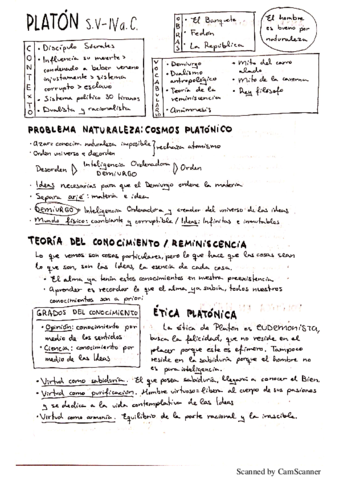 PLATÓN S.V-IV a.C.
CONTEXTO
• Discípulo Sócrates
• Influencia su muerte >
condenado a beber veneno
injustamente > sistema
corrupto > esclavo
• Sistema político 30 tiranos
• Dualista y racionalista
OBRAS
• El Banquete
• Fedón
• La República
El hombre
es bueno por
naturaleza
VOCABULARIO
• Demiurgo
• Dualismo
antropológico
• Teoría de la
reminiscencia
• Anámnesis
• Mito del carro
alado
• Mito de la caverna
• Rey filósofo
PROBLEMA NATURALEZA: COSMOS PLATÓNICO
• Azar: conocim. naturaleza imposible
• Orden universo = desorden
rechaza atomismo
Desorden
Inteligencia Ordenadora
DEMIURGO
Orden
• Ideas necesarias para que el Demiurgo ordene la materia
• Separa arjé: materia e idea
• DEMIURGO > Inteligencia Ordenadora y creador del universo de las ideas
• Mundo físico: cambiante y corruptible / Ideas: Infinitas e inmutables
TEORÍA DEL CONOCIMIENTO / REMINISCENCIA
Lo que vemos son cosas particulares, pero lo que hace que las cosas sean
lo que son, son las Ideas, la esencia de cada cosa.
• El alma ya tenía estos conocimientos en nuestra preexistencia
• Aprender es recordar lo que el alma ya sabía, todos nuestros
conocimientos son a priori
GRADOS DEL CONOCIMIENTO
• Opinión: conocimiento por
medio de los sentidos
• Ciencia: conocimiento por
medio de las Ideas
ÉTICA PLATÓNICA
La ética de Platón es EUDEMONISTA,
busca la felicidad, que no reside en el
placer porque este es efímero. Tampoco
reside en la sabiduría porque el hombre no
es pura inteligencia.
• Virtud como sabiduría. El que posea sabiduría, llegará a conocer el Bien
• Virtud como purificación. Hombre virtuoso: libera al cuerpo de sus pasiones
y se dedica a la vida contemplativa de las Ideas
• Virtud como armonía. Equilibrio de la parte racional y la irascible.
Scanned by CamScanner